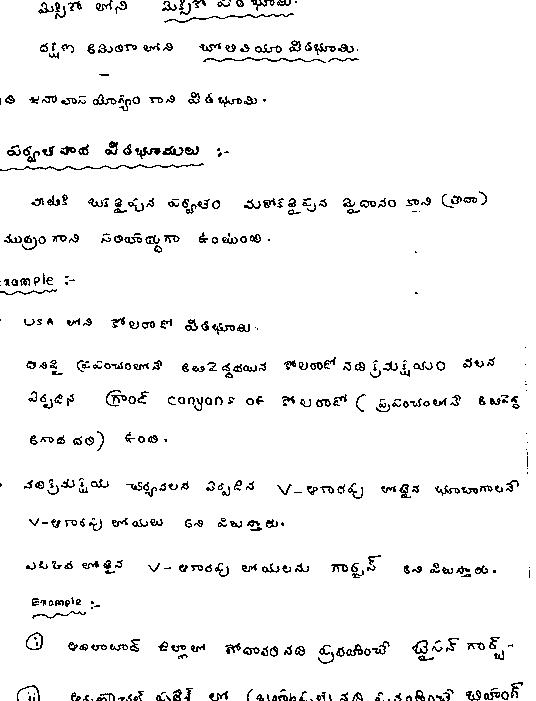 మెక్సికో లోని మెక్సికో పీఠభూమి.
దక్షిణ అమెరికా లోని బొలీవియా పీఠభూమి.
జనావాస యోగ్యం కాని పీఠభూమి.
పర్వతపాద పీఠభూములు :-
వీటికి ఒకవైపున పర్వతం మరొకవైపున మైదానం కాని (లేదా)
సముద్రం కాని సరిహద్దుగా ఉంటుంది.
Example :-
USA లోని కొలరాడో పీఠభూమి.
దీనిపై ప్రపంచంలోనే కొలరాడో నది క్రమక్షయం వలన
ఏర్పడిన గ్రాండ్ canyons of కొలరాడో ( ప్రపంచంలోనే అతిపెద్ద
అగాధ దరి) ఉంది.
నదీక్రమక్షయ చర్యవలన ఏర్పడిన V-ఆకారపు లోతైన భూభాగాలనే
V-ఆకారపు లోయలు అని పిలుస్తారు.
లోతైన V-ఆకారపు లోయలను గార్జెస్ అని పిలుస్తారు.
Example :-
i ఆదిలాబాద్ జిల్లాలో గోదావరి నది ప్రవహించే బైసన్ గార్జ్-
ii అరుణాచల్ ప్రదేశ్ లో (బ్రహ్మపుత్ర) నది ప్రవహించే